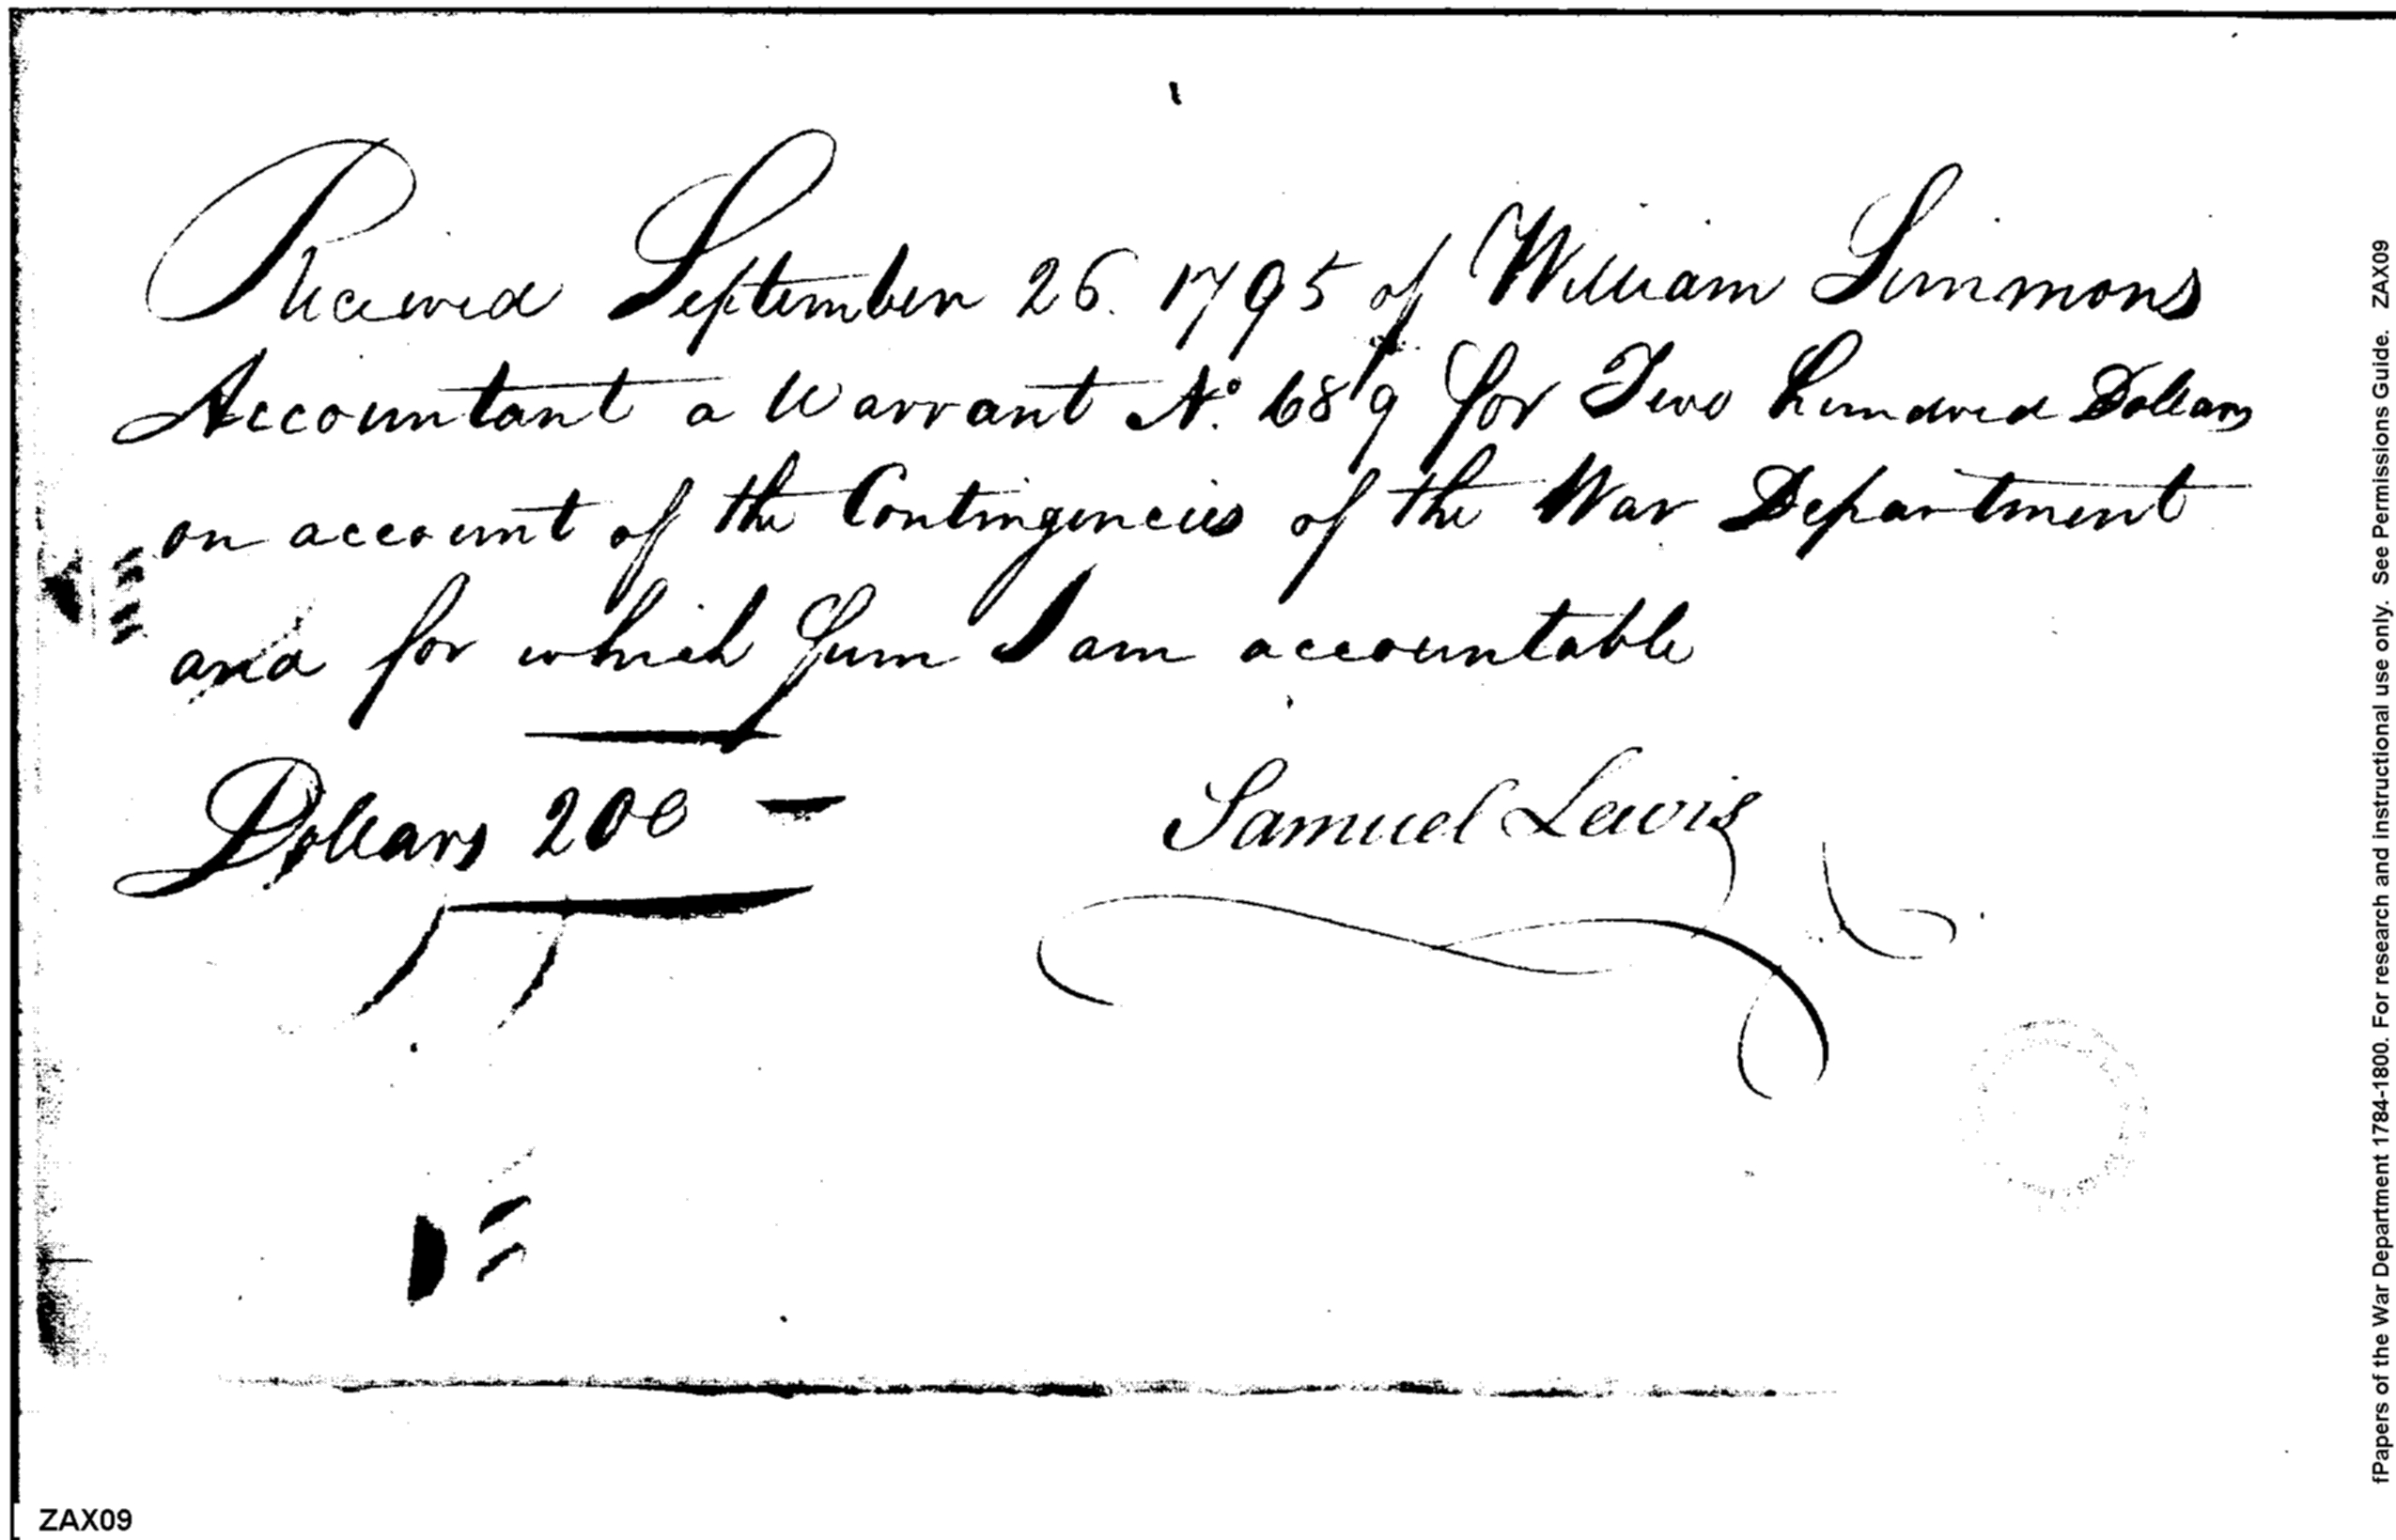 Received September 26. 1795 of William Simmons
Accountant a Warrant No. 689 for Two hundred Dollars
on account of the Contingencies of the War Department
and for which Sum I am accountable
Dollars 200 —
Samuel Lewis
ZAX09
fPapers of the War Department 1784-1800. For research and instructional use only. See Permissions Guide. ZAX09